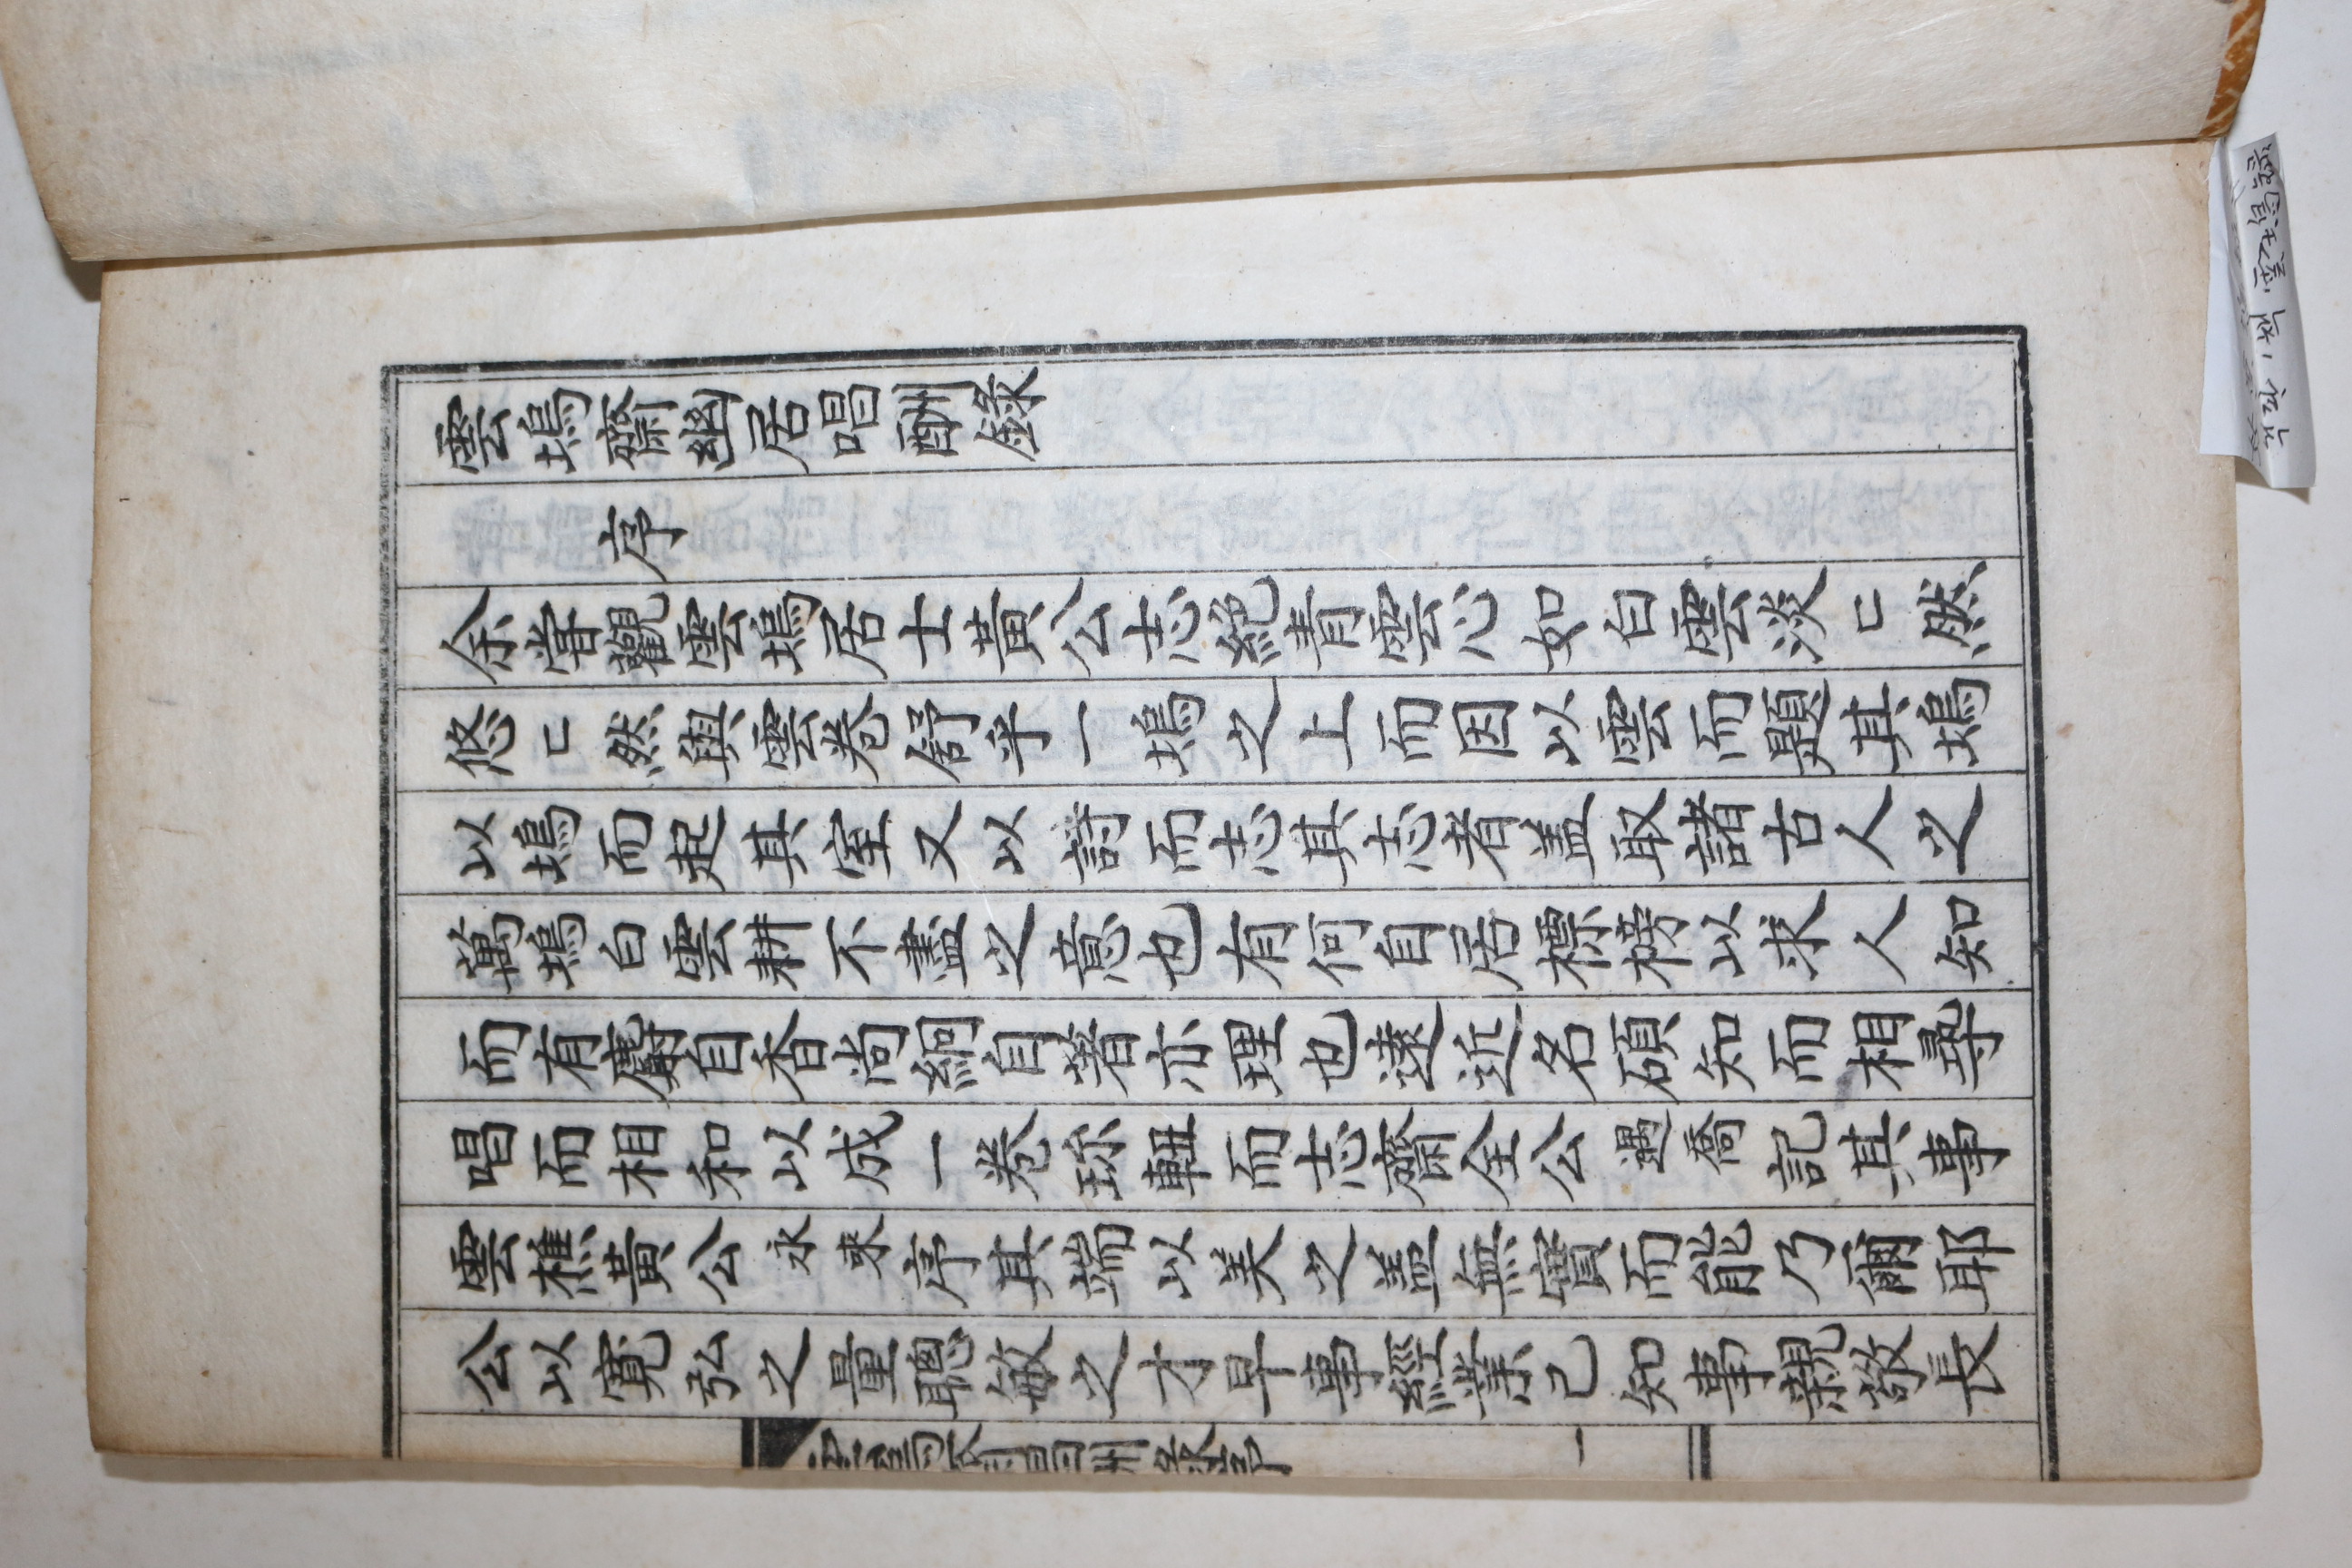 雲塢齋幽居唱酬錄
序
余甞觀雲塢居士黃公志絶青雲心如白雲淡〻然
悠〻然與雲卷舒乎一塢之上而因以雲而題其塢
以塢而起其室又以詩而志其志者盖取諸古人之
萬塢白雲耕不盡之意也有何自居標榜以求人知
而有麝自香尚絅自著亦理也遠近名碩知而相尋
唱而相和以成一卷珎軸而志齋全公遇喬記其事
雲樵黃公永來序其端以美之盖無實而能乃爾耶
公以寛弘之量聰敏之才早事經業己知事親敬長
一